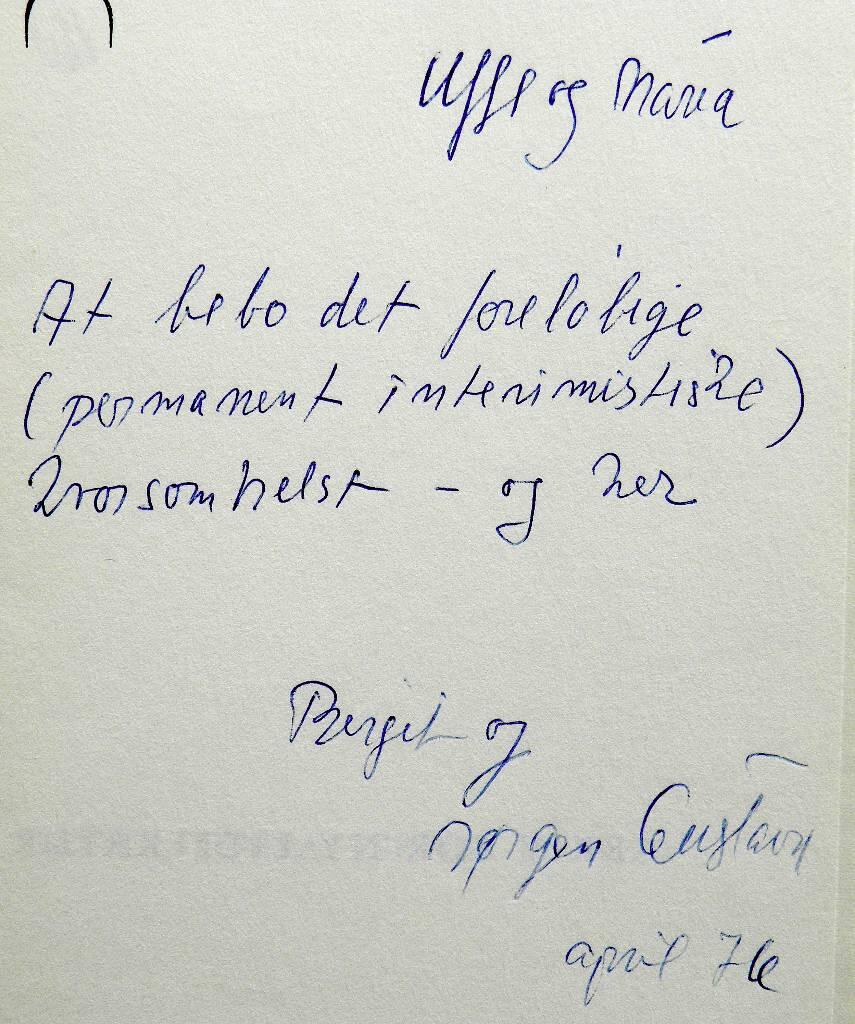 Uffe og Maria
At bebo det foreløbige
(permanent interimistiske)
hvorsomhelst – og her
Bergit og
Jørgen Gustava
april 76